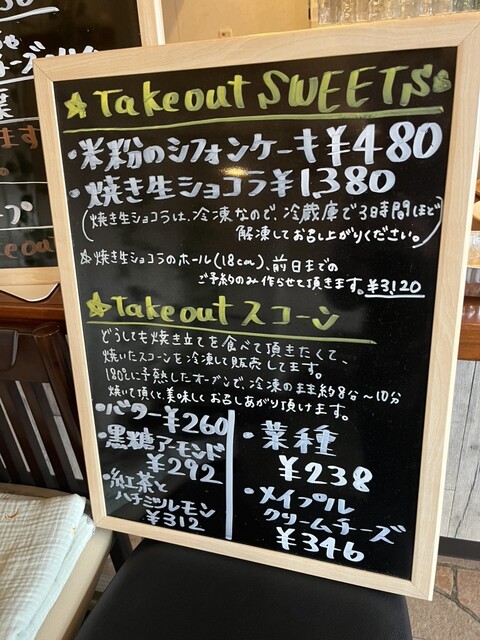 ☆Takeout SWEETS
・米粉のシフォンケーキ¥480
・焼き生ショコラ¥1,380
(焼き生ショコラは、冷凍なので、冷蔵庫で3時間ほど
解凍してお召し上がりください。)
☆焼き生ショコラのホール(18cm)、前日までの
ご予約のみ作らせて頂きます。¥3,120
☆Takeout スコーン
どうしても焼き立てを食べて頂きたくて、
焼いたスコーンを冷凍して販売してます。
180℃に予熱したオーブンで、冷凍のまま約8分〜10分
焼いて頂くと、美味しくお召しあがり頂けます。
・バター ¥260
・黒糖アーモンド
¥292
・紅茶と
ハチミツレモン
¥312
・菜種
¥238
・メイプル
クリームチーズ
¥346